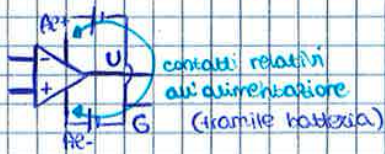 Al+
-
+
U
G
Al-
contatti relativi
all'alimentazione
(tramite batteria)